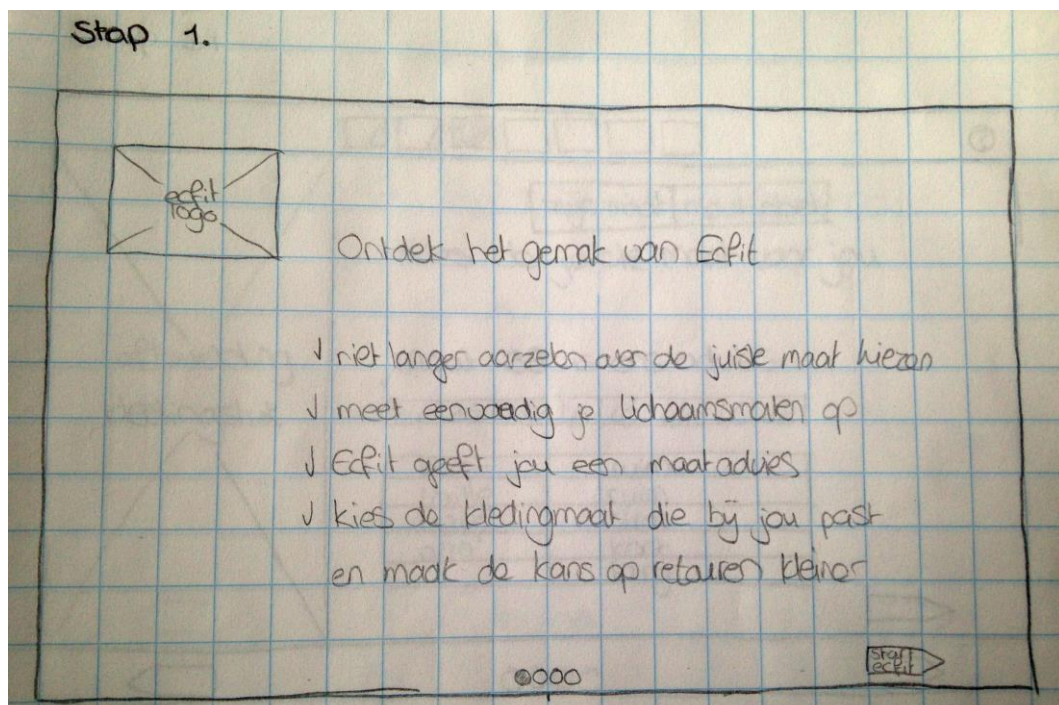 Stap 1.
ecfit
logo
Ontdek het gemak van Ecfit
√ niet langer aarzelen over de juiste maat kiezen
√ meet eenvoudig je lichaamsmaten op
√ Ecfit geeft jou een maatadvies
√ kies de kledingmaat die bij jou past
en maak de kans op retouren kleiner
start
ecfit